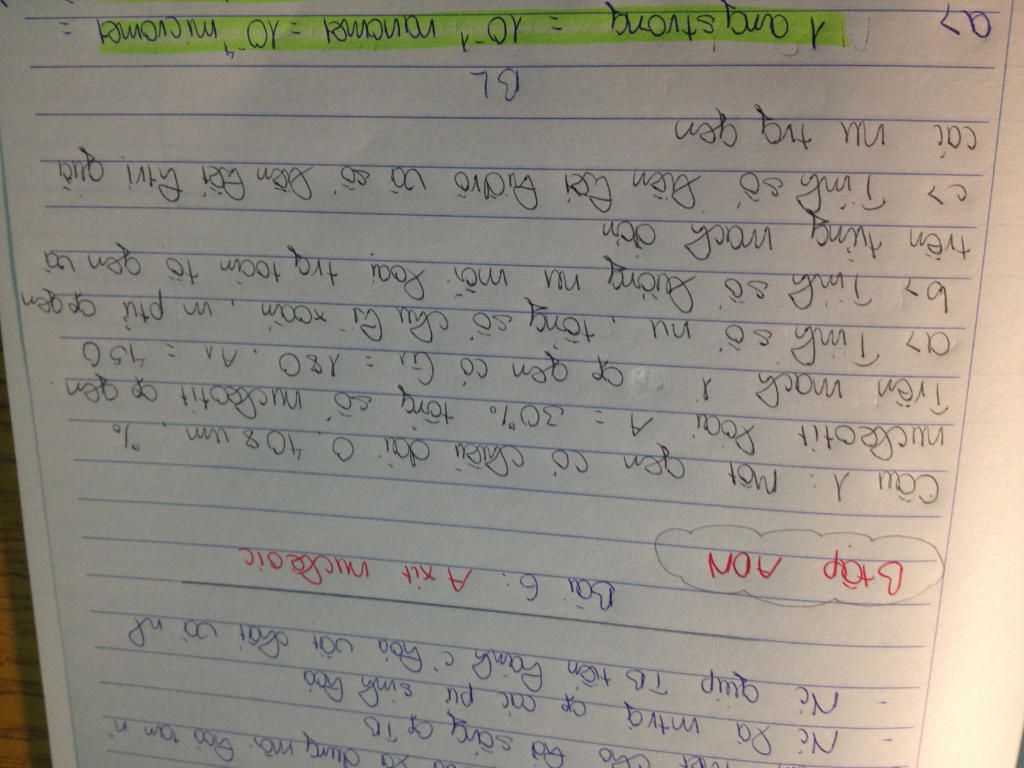 - Nc là mtrg cơ các pứ sinh hóa
- Nc giúp TB tiến hành c' hóa vật chất và nl
Bài 6: Axit nucleoic
Btập ADN
Câu 1: một gen có chiều dài 0,408 um, %
nucleotit loại A = 30% tổng số nucleotit of gen
Trên mạch 1 of gen có G1 = 180. A1 = 450
a> Tính số nu, tổng số chu kì xoắn, m ptử of gen
b> Tính số lượng nu mỗi loại trg toàn bộ gen và
trên từng mạch đơn
c> Tính số liên kết hidrô và số liên kết htrị giữa
các nu trg gen
BL
a> 1 angstrong = 10⁻¹ nanomet = 10⁻⁴ micromet =